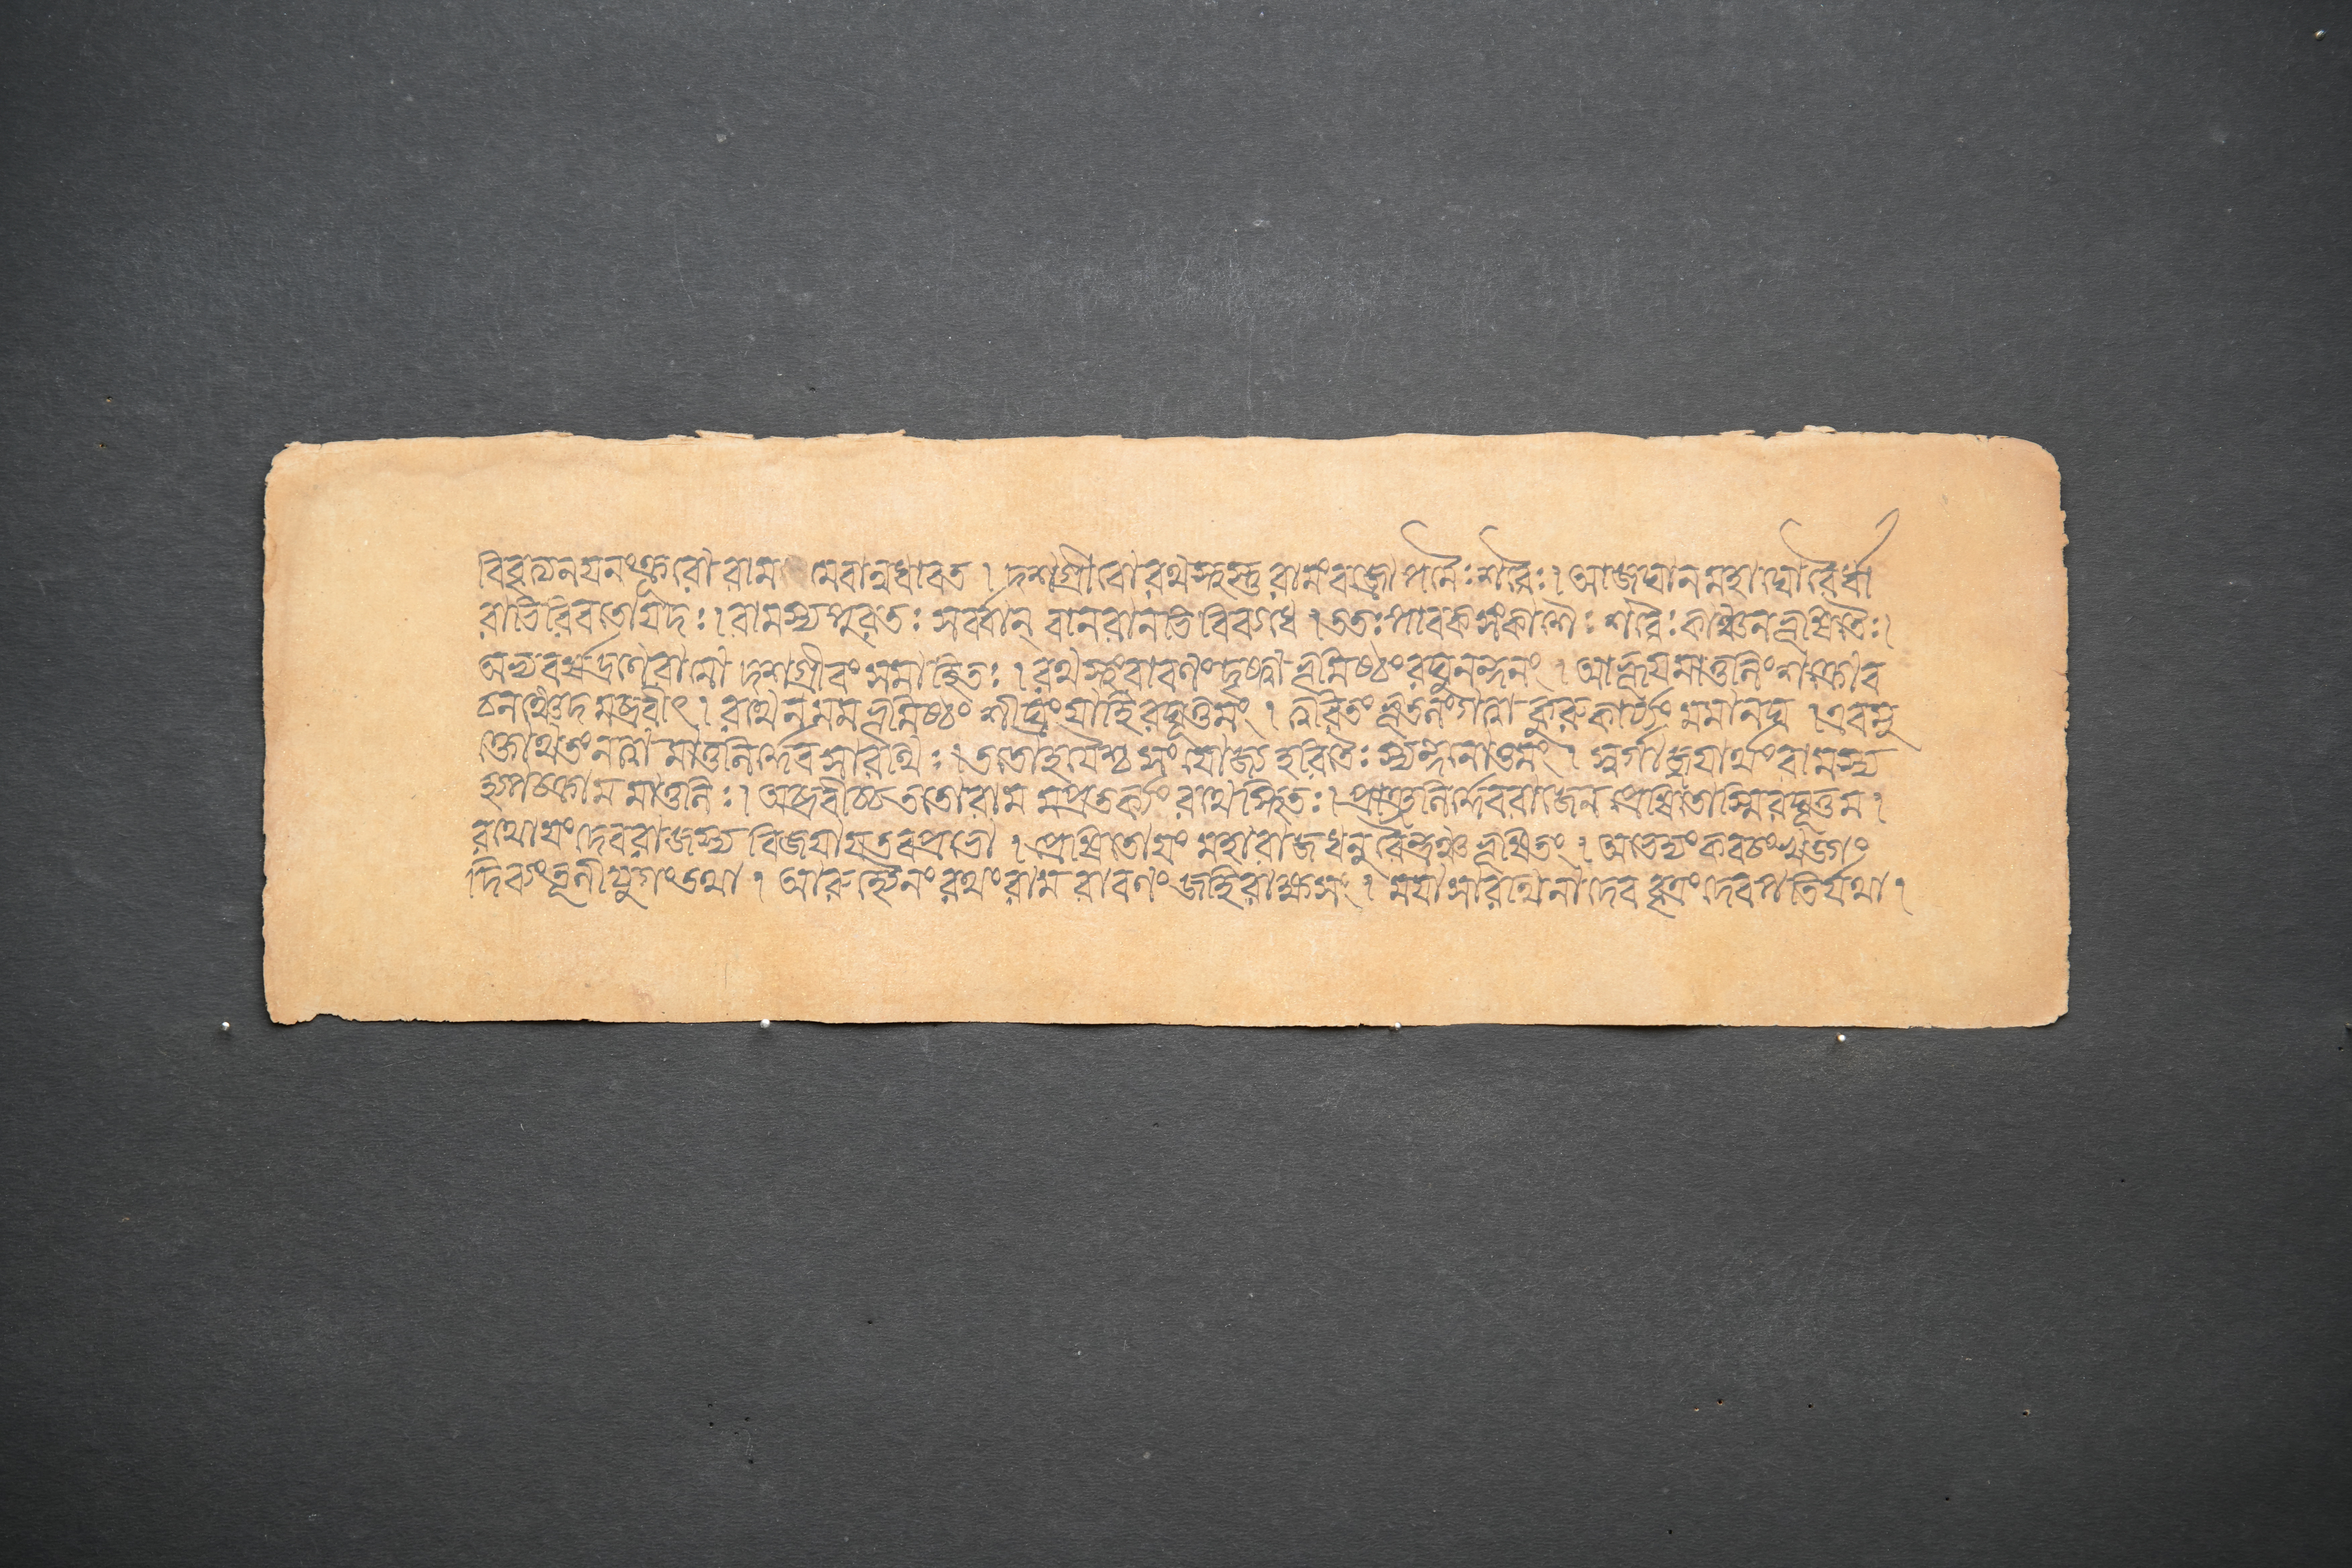 বিবৃত্যনয়নংক্রূরো রাম মেবান্বধাবত । দশগ্রীবো রথস্থস্তু রামং বজ্রোপমৈঃ শরৈঃ । আজঘান মহাঘোরৈর্ধা
রাভিরিবতোয়দঃ । রামস্যপুরতঃ সর্ব্বান্ বানরানভি বিব্যধে । ততঃ পাবকসংকাশৈঃ শরৈঃ কাঞ্চনভূষিতৈঃ ।
অভ্যবর্ষদ্রণেরামো দশগ্রীবং সমাহিতঃ । রথস্থংরাবণং দৃষ্ট্বা ভূমিষ্ঠং রঘুনন্দনং । আহূয়মাতলিং শক্রোব
চনঞ্চেদ মব্রবীৎ । রথেন মম ভূমিষ্ঠং শীঘ্রং যাহি রঘূত্তমং । ত্বরিতং ভূতলংগত্বা কুরু কার্য্যং মমানঘ । এবমু
ক্তোথতংনত্বা মাতলির্দেবসারথিঃ । ততোহয়ৈশ্চ সংযোজ্য হরিতৈঃ স্যন্দনোত্তমং । স্বর্গাজ্জয়ার্থং রামস্য
হ্যুপচক্রাম মাতলিঃ । অব্রবীচ্চ ততোরাম মপ্রতর্ক্য রথেস্থিতঃ । প্রাঞ্জলির্দেবরাজেন প্রেষিতোস্মি রঘূত্তম ।
রথোয়ং দেবরাজস্য বিজয়ায়তবপ্রভো । প্রেষিতোয়ং মহারাজধনু রৈন্দ্রঞ্চ ভূষিতং । অভেদ্যং কবচং খড়্গং
দিব্যংতূণীযুগংতথা । আরুহ্যৈনং রথং রাম রাবণং জহিরাক্ষসং । ময়াসারথিনা দেব বৃত্রং দেবপতির্যথা ।